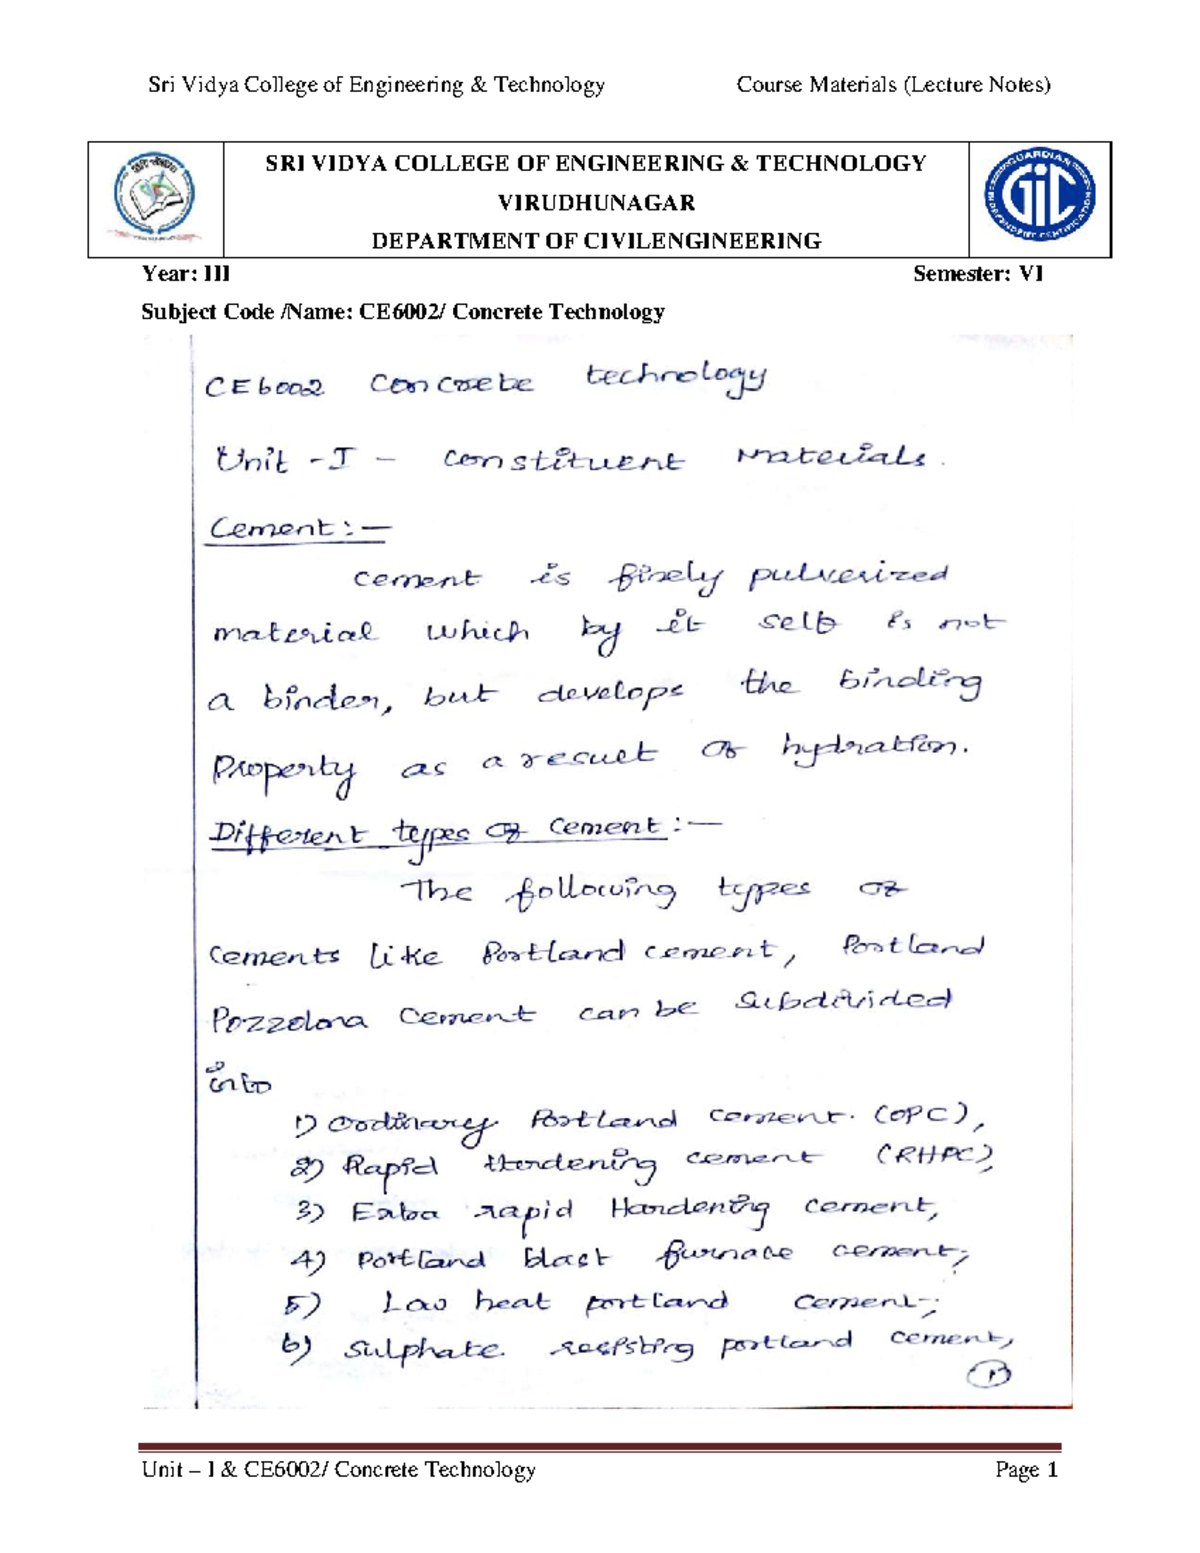 Sri Vidya College of Engineering & Technology Course Materials (Lecture Notes)
SRI VIDYA COLLEGE OF ENGINEERING & TECHNOLOGY
VIRUDHUNAGAR
DEPARTMENT OF CIVILENGINEERING
GUARDIAN
GIC
INDEPENDENT CERTIFICATION
Year: III Semester: VI
Subject Code /Name: CE6002/ Concrete Technology
CE6002 Concrete technology
Unit - I - Constituent Materials.
Cement:-
Cement is finely pulverized
material which by it self is not
a binder, but develops the binding
Property as a result of hydration.
Different types of cement:-
The following types of
cements like Portland cement, Portland
Pozzolona cement can be subdivided
into
1) Ordinary Portland cement. (OPC),
2) Rapid Hardening cement (RHPC),
3) Extra rapid Hardening cement,
4) Portland blast furnace cement,
5) Low heat portland cement,
6) Sulphate resisting portland cement,
Unit – I & CE6002/ Concrete Technology Page 1